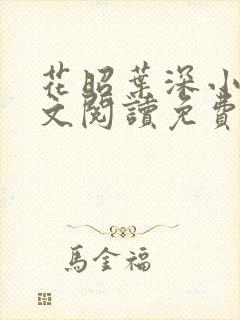 花昭葉深小
文閱讀免費
馬金福